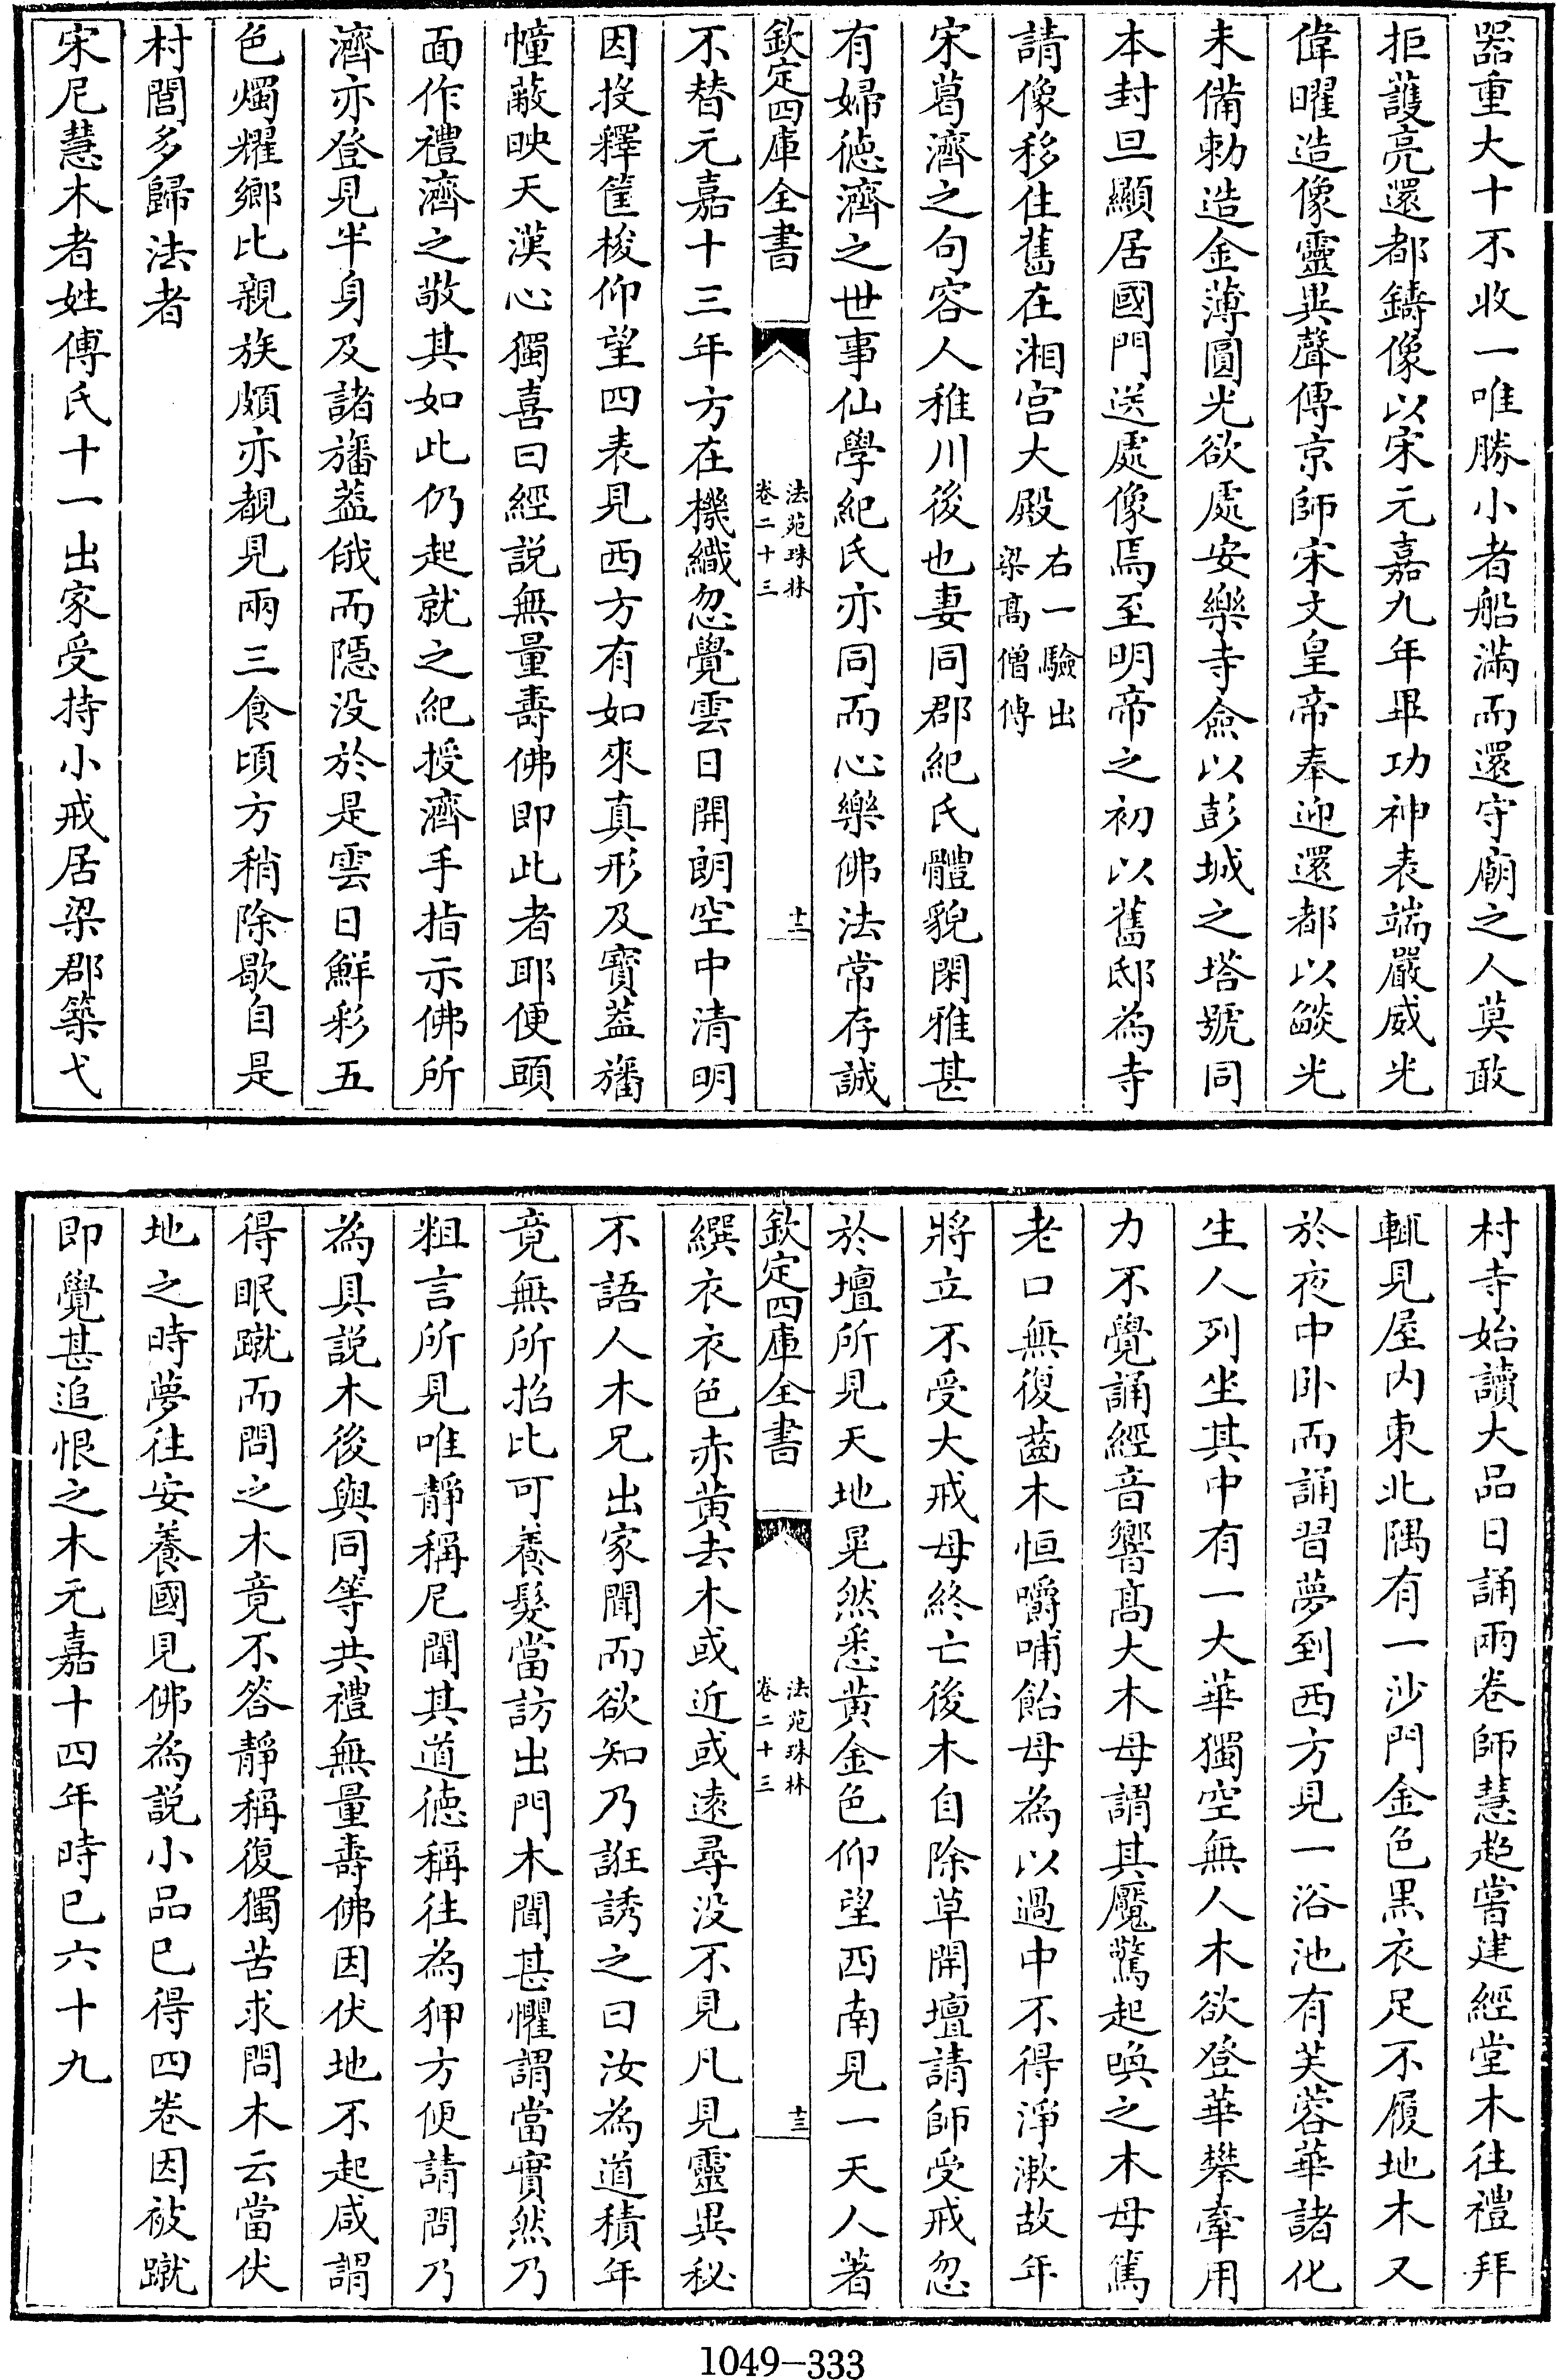 器重大十不收一唯勝小者船滿而還守廟之人莫敢
拒䕶亮還都鑄像以宋元嘉九年畢功神表端嚴威光
偉曜造像靈異聲傳京師宋文皇帝奉迎還都以燄光
未備勅造金薄圓光欲處安樂寺僉以彭城之塔號同
本封旦顯居國門送處像焉至明帝之初以舊邸為寺
請像移住舊在湘宫大殿右一驗出
梁髙僧傳
宋葛濟之句容人稚川後也妻同郡紀氏體貌閑雅甚
有婦徳濟之世事仙學紀氏亦同而心樂佛法常存誠
欽定四庫全書
法苑珠林
卷二十三
十二
不替元嘉十三年方在機織忽覺雲日開朗空中清明
因投釋筐梭仰望四表見西方有如來真形及寳葢旛
幢蔽映天漢心獨喜曰經説無量壽佛即此者耶便頭
面作禮濟之敬其如此仍起就之紀授濟手指示佛所
濟亦登見半身及諸旛葢俄而隠没於是雲日鮮彩五
色燭耀鄉比親族頗亦覩見兩三食頃方稍除歇自是
村閭多歸法者
宋尼慧木者姓傅氏十一出家受持小戒居梁郡築弋
村寺始讀大品日誦兩卷師慧超嘗建經堂木往禮拜
輒見屋内東北隅有一沙門金色黒衣足不履地木又
於夜中卧而誦習夢到西方見一浴池有芙蓉華諸化
生人列坐其中有一大華獨空無人木欲登華攀牽用
力不覺誦經音響髙大木母謂其魘驚起喚之木母篤
老口無復齒木恒嚼哺飴母為以過中不得淨漱故年
將立不受大戒母終亡後木自除草開壇請師受戒忽
於壇所見天地晃然悉黄金色仰望西南見一天人著
欽定四庫全書
法苑珠林
卷二十三
十三
繏衣衣色赤黄去木或近或逺尋没不見凡見靈異秘
不語人木兄出家聞而欲知乃誑誘之曰汝為道積年
竟無所招比可養髮當訪出門木聞甚懼謂當實然乃
粗言所見唯靜稱尼聞其道徳稱往為狎方便請問乃
為具説木後與同等共禮無量壽佛因伏地不起咸謂
得眠蹴而問之木竟不答靜稱復獨苦求問木云當伏
地之時夢往安養國見佛為説小品已得四卷因被蹴
即覺甚追恨之木元嘉十四年時已六十九
1049-333